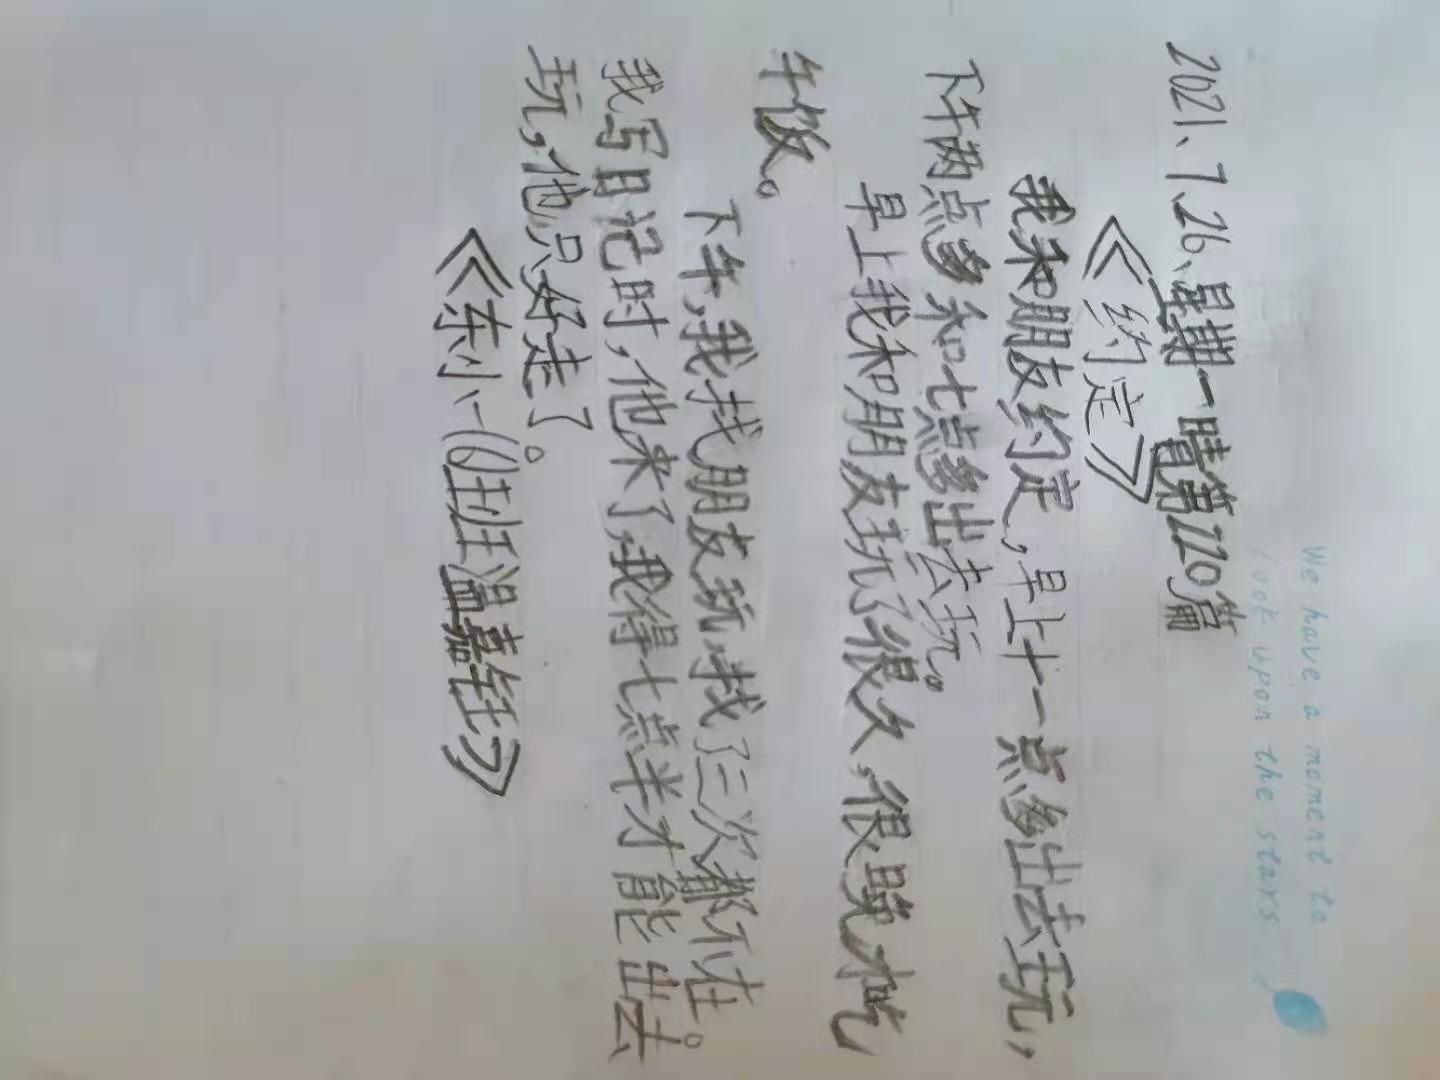 We have a moment to
look upon the stars
2021、7、26、星期一晴第220篇
《约定》
我和朋友约定,早上十一点多出去玩,
下午两点多和七点多出去玩。
早上我和朋友玩了很久,很晚才吃
午饭。
下午,我找朋友玩,找了三次都不在。
我写日记时,他来了,我得七点半才能出去
玩,他只好走了。
《东小一(6)班温嘉钰》